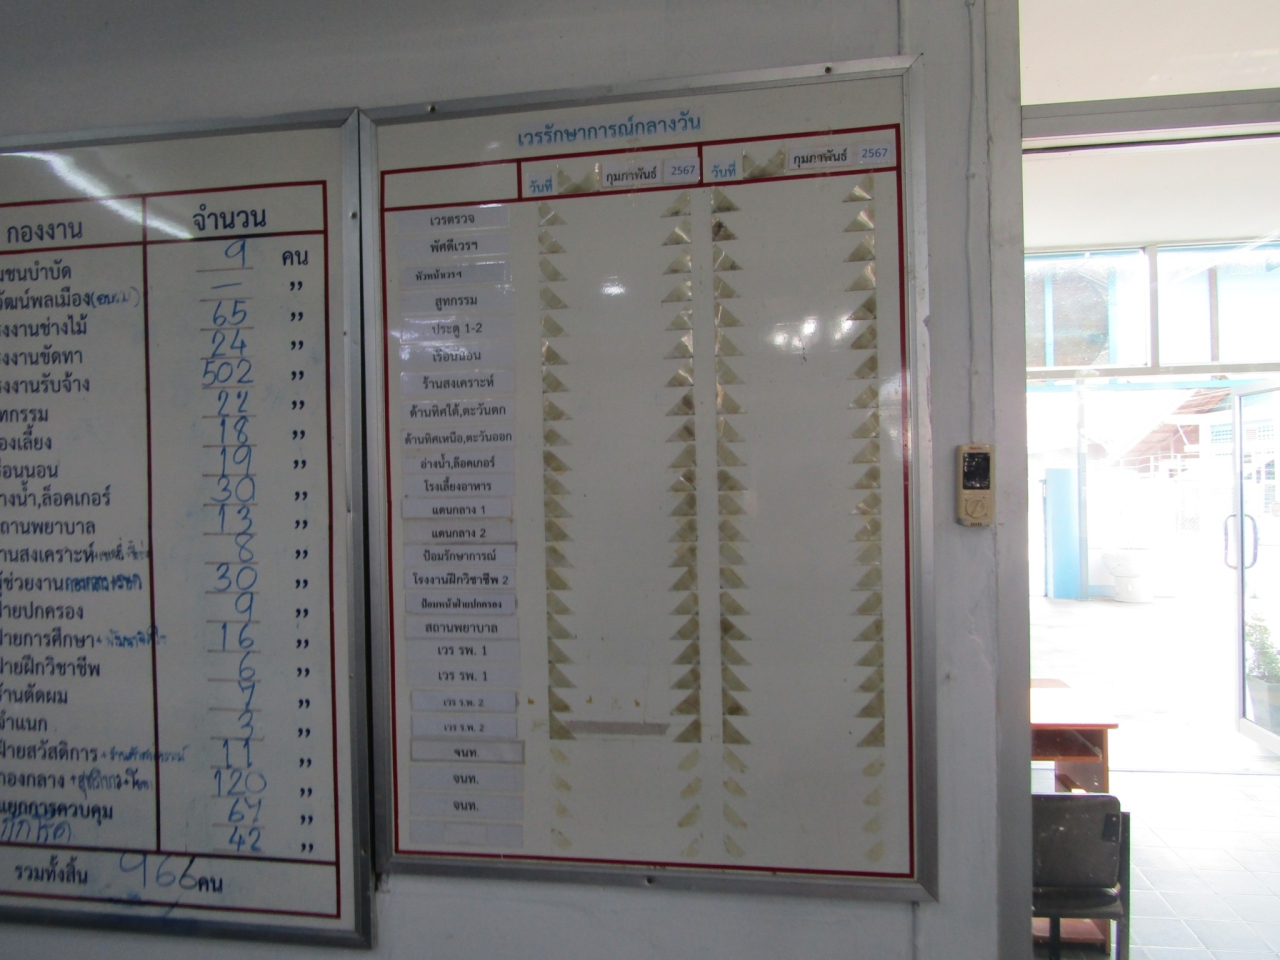 กองงาน จำนวน
นชนบำบัด 9 คน
วัฒน์พลเมือง — ,,
รงงานช่างไม้ 65 ,,
รงงานขัดทา 24 ,,
รงงานรับจ้าง 502 ,,
ทกรรม 22 ,,
องเลี้ยง 18 ,,
รือนนอน 19 ,,
างน้ำ,ล็อคเกอร์ 30 ,,
ถานพยาบาล 13 ,,
านสงเคราะห์ 8 ,,
ผู้ช่วยงาน 30 ,,
ฝ่ายปกครอง 9 ,,
ฝ่ายการศึกษา 16 ,,
ฝ่ายฝึกวิชาชีพ 6 ,,
ร้านตัดผม 7 ,,
จำแนก 3 ,,
ฝ่ายสวัสดิการ 11 ,,
กองกลาง 120 ,,
แยกการควบคุม 67 ,,
42 ,,
รวมทั้งสิ้น 966 คน
เวรรักษาการณ์กลางวัน
วันที่ กุมภาพันธ์ 2567 วันที่ กุมภาพันธ์ 2567
เวรตรวจ
พัศดีเวรฯ
หัวหน้าเวรฯ
สูทกรรม
ประตู 1-2
เรือนนอน
ร้านสงเคราะห์
ด้านทิศใต้,ตะวันตก
ด้านทิศเหนือ,ตะวันออก
อ่างน้ำ,ล็อคเกอร์
โรงเลี้ยงอาหาร
แดนกลาง 1
แดนกลาง 2
ป้อมรักษาการณ์
โรงงานฝึกวิชาชีพ 2
ป้อมหน้าฝ่ายปกครอง
สถานพยาบาล
เวร รพ. 1
เวร รพ. 1
เวร ร.พ. 2
เวร ร.พ. 2
จนท.
จนท.
จนท.